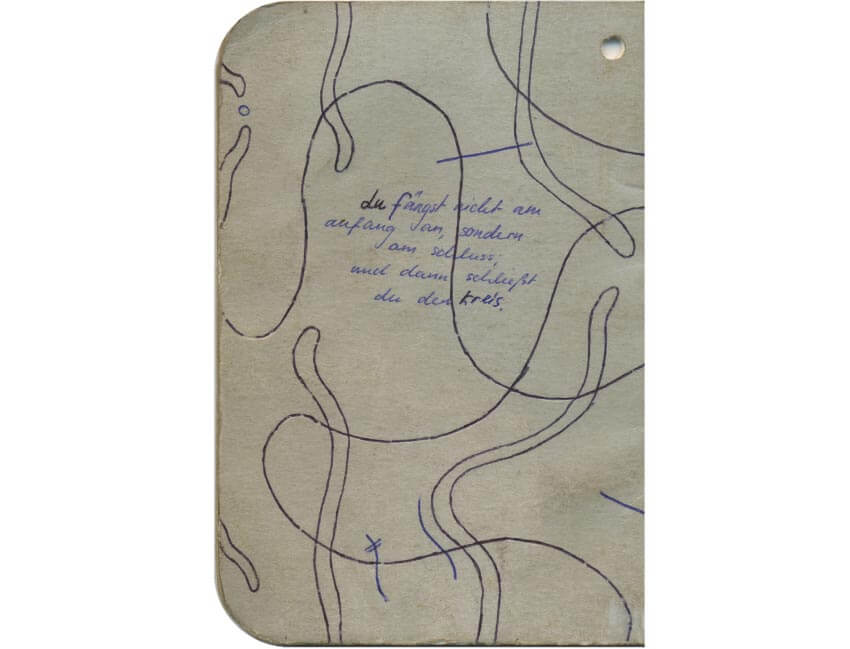 du fängst nicht am
anfang an, sondern
am schluss,
und dann schließt
du den kreis.